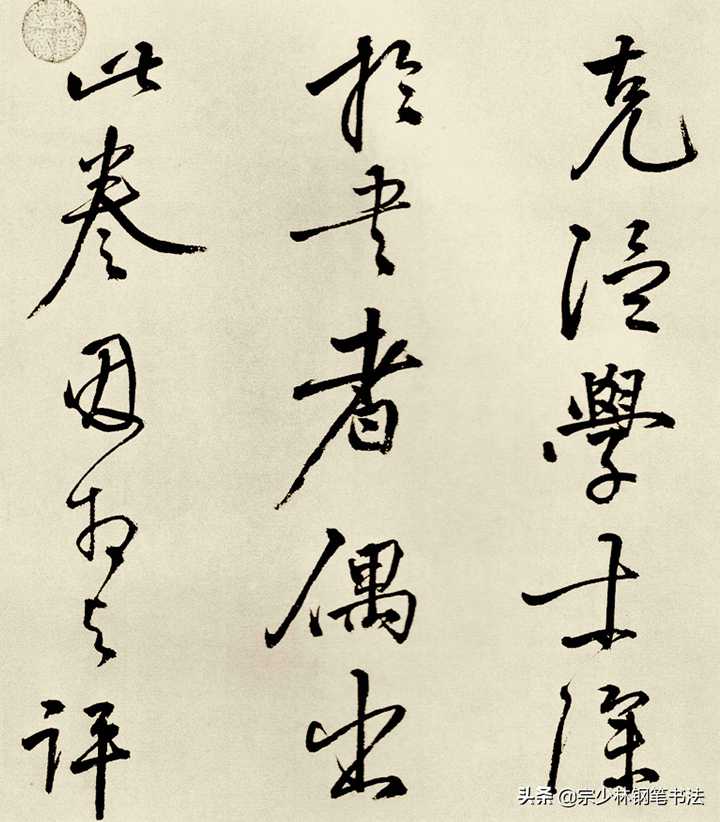 克温學士深
於書者偶出
此卷因相与評
头条 @宗少林钢笔书法